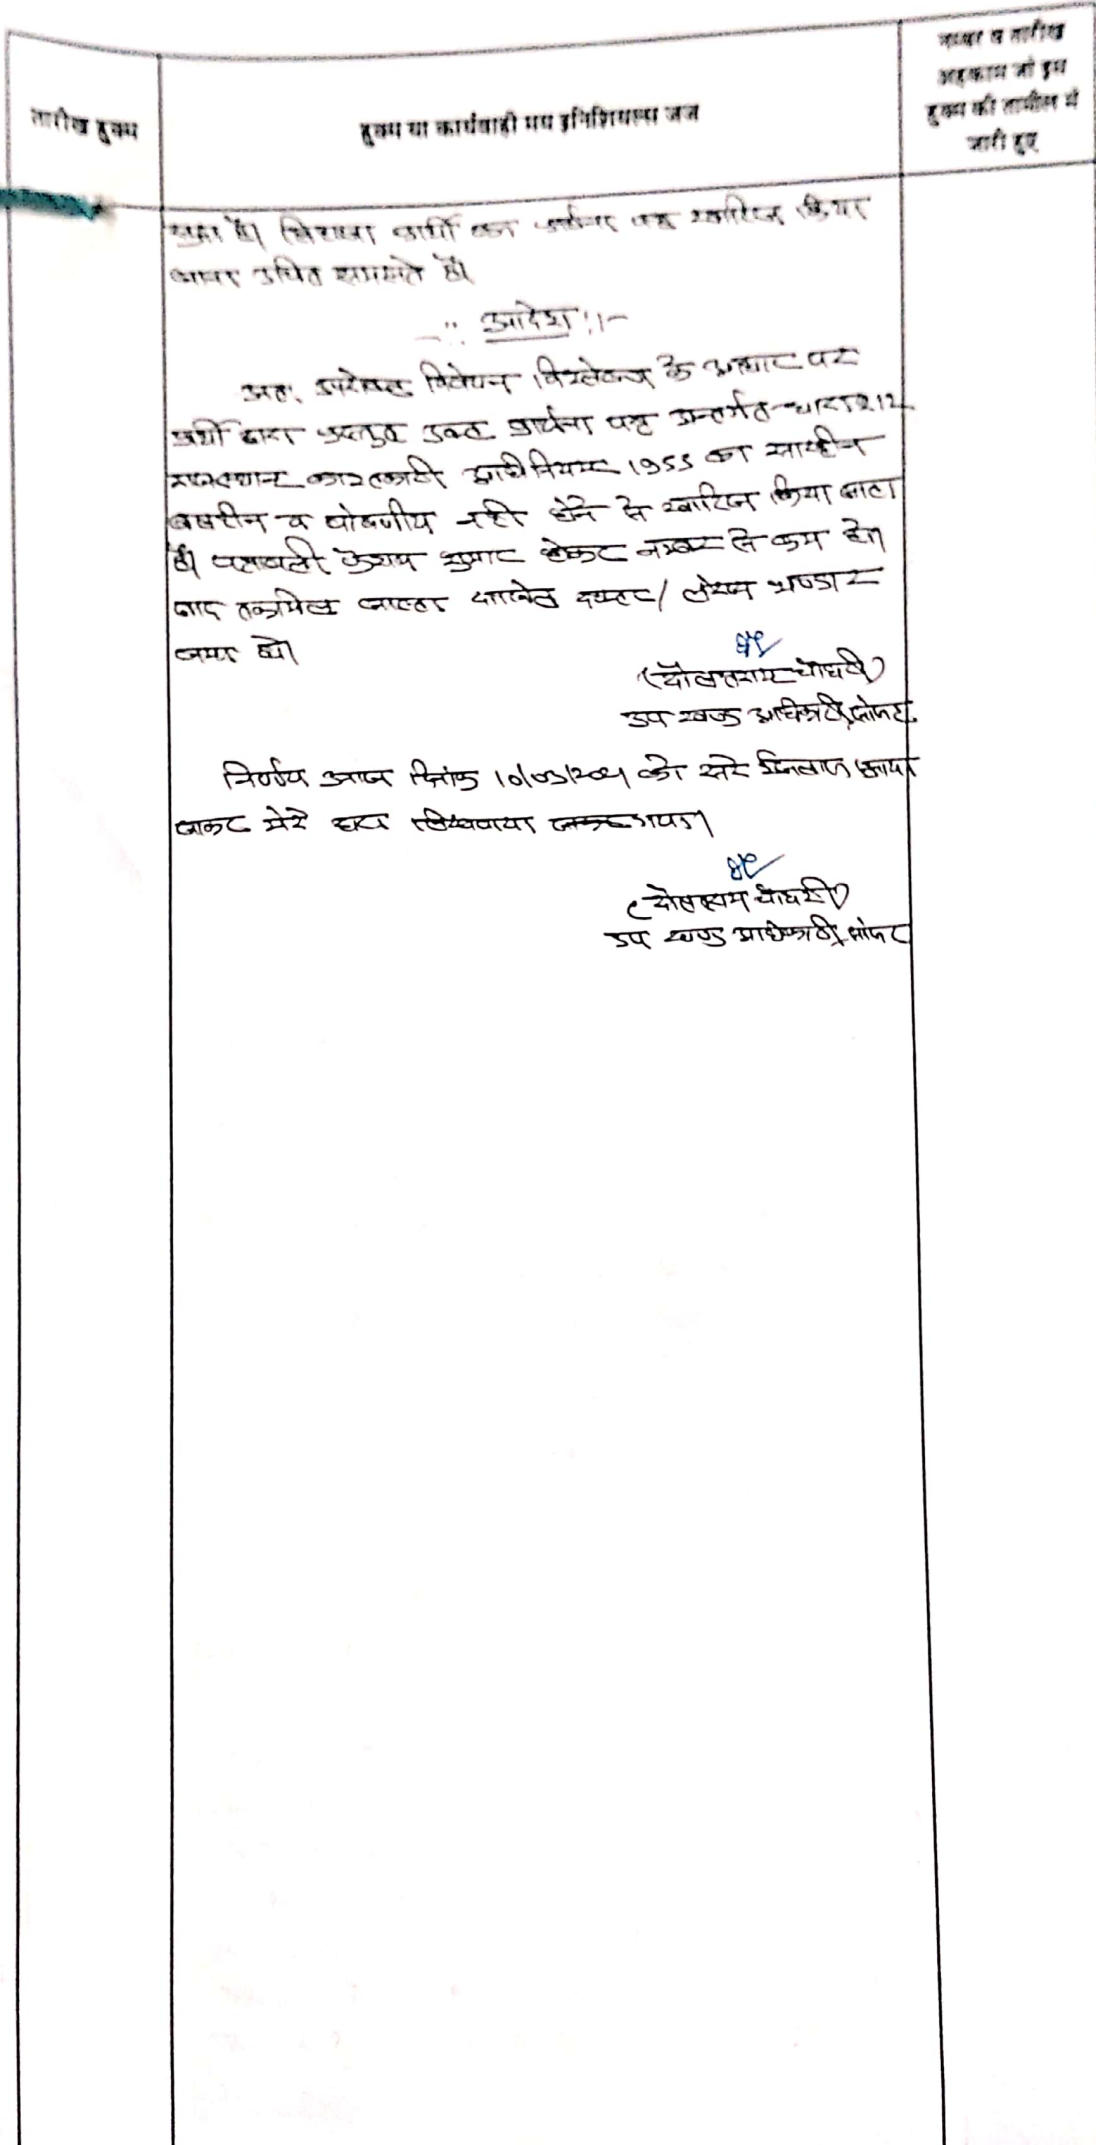 तारीख हुक्म
हुक्म या कार्यवाही मय इनिशियल्स जज
नम्बर व तारीख
अहकाम जो इस
हुक्म की तामील में
जारी हुए
चुका है। लिहाजा प्रार्थी का प्रार्थना पत्र खारिज किया
जाना उचित समझते है।
-:: आदेश ::-
अतः उपरोक्त विवेचन विश्लेषण के आधार पर
प्रार्थी द्वारा प्रस्तुत उक्त प्रार्थना पत्र अन्तर्गत धारा 212
राजस्थान काश्तकारी अधिनियम 1955 का सारहीन
बलहीन व पोषणीय नही होने से खारिज किया जाता
है। पत्रावली फैसल शुमार होकर नम्बर से कम हो।
बाद तकमिल जाब्ता दाखिल दफ्तर/ लेख्य भण्डार
जमा हो।
(दौलतराम चौधरी)
उप खण्ड अधिकारी, सोजत
निर्णय आज दिनांक 10/03/2021 को सरे इजलास
जाकर मेरे द्वारा लिखवाया गया।
(दौलतराम चौधरी)
उप खण्ड अधिकारी, सोजत